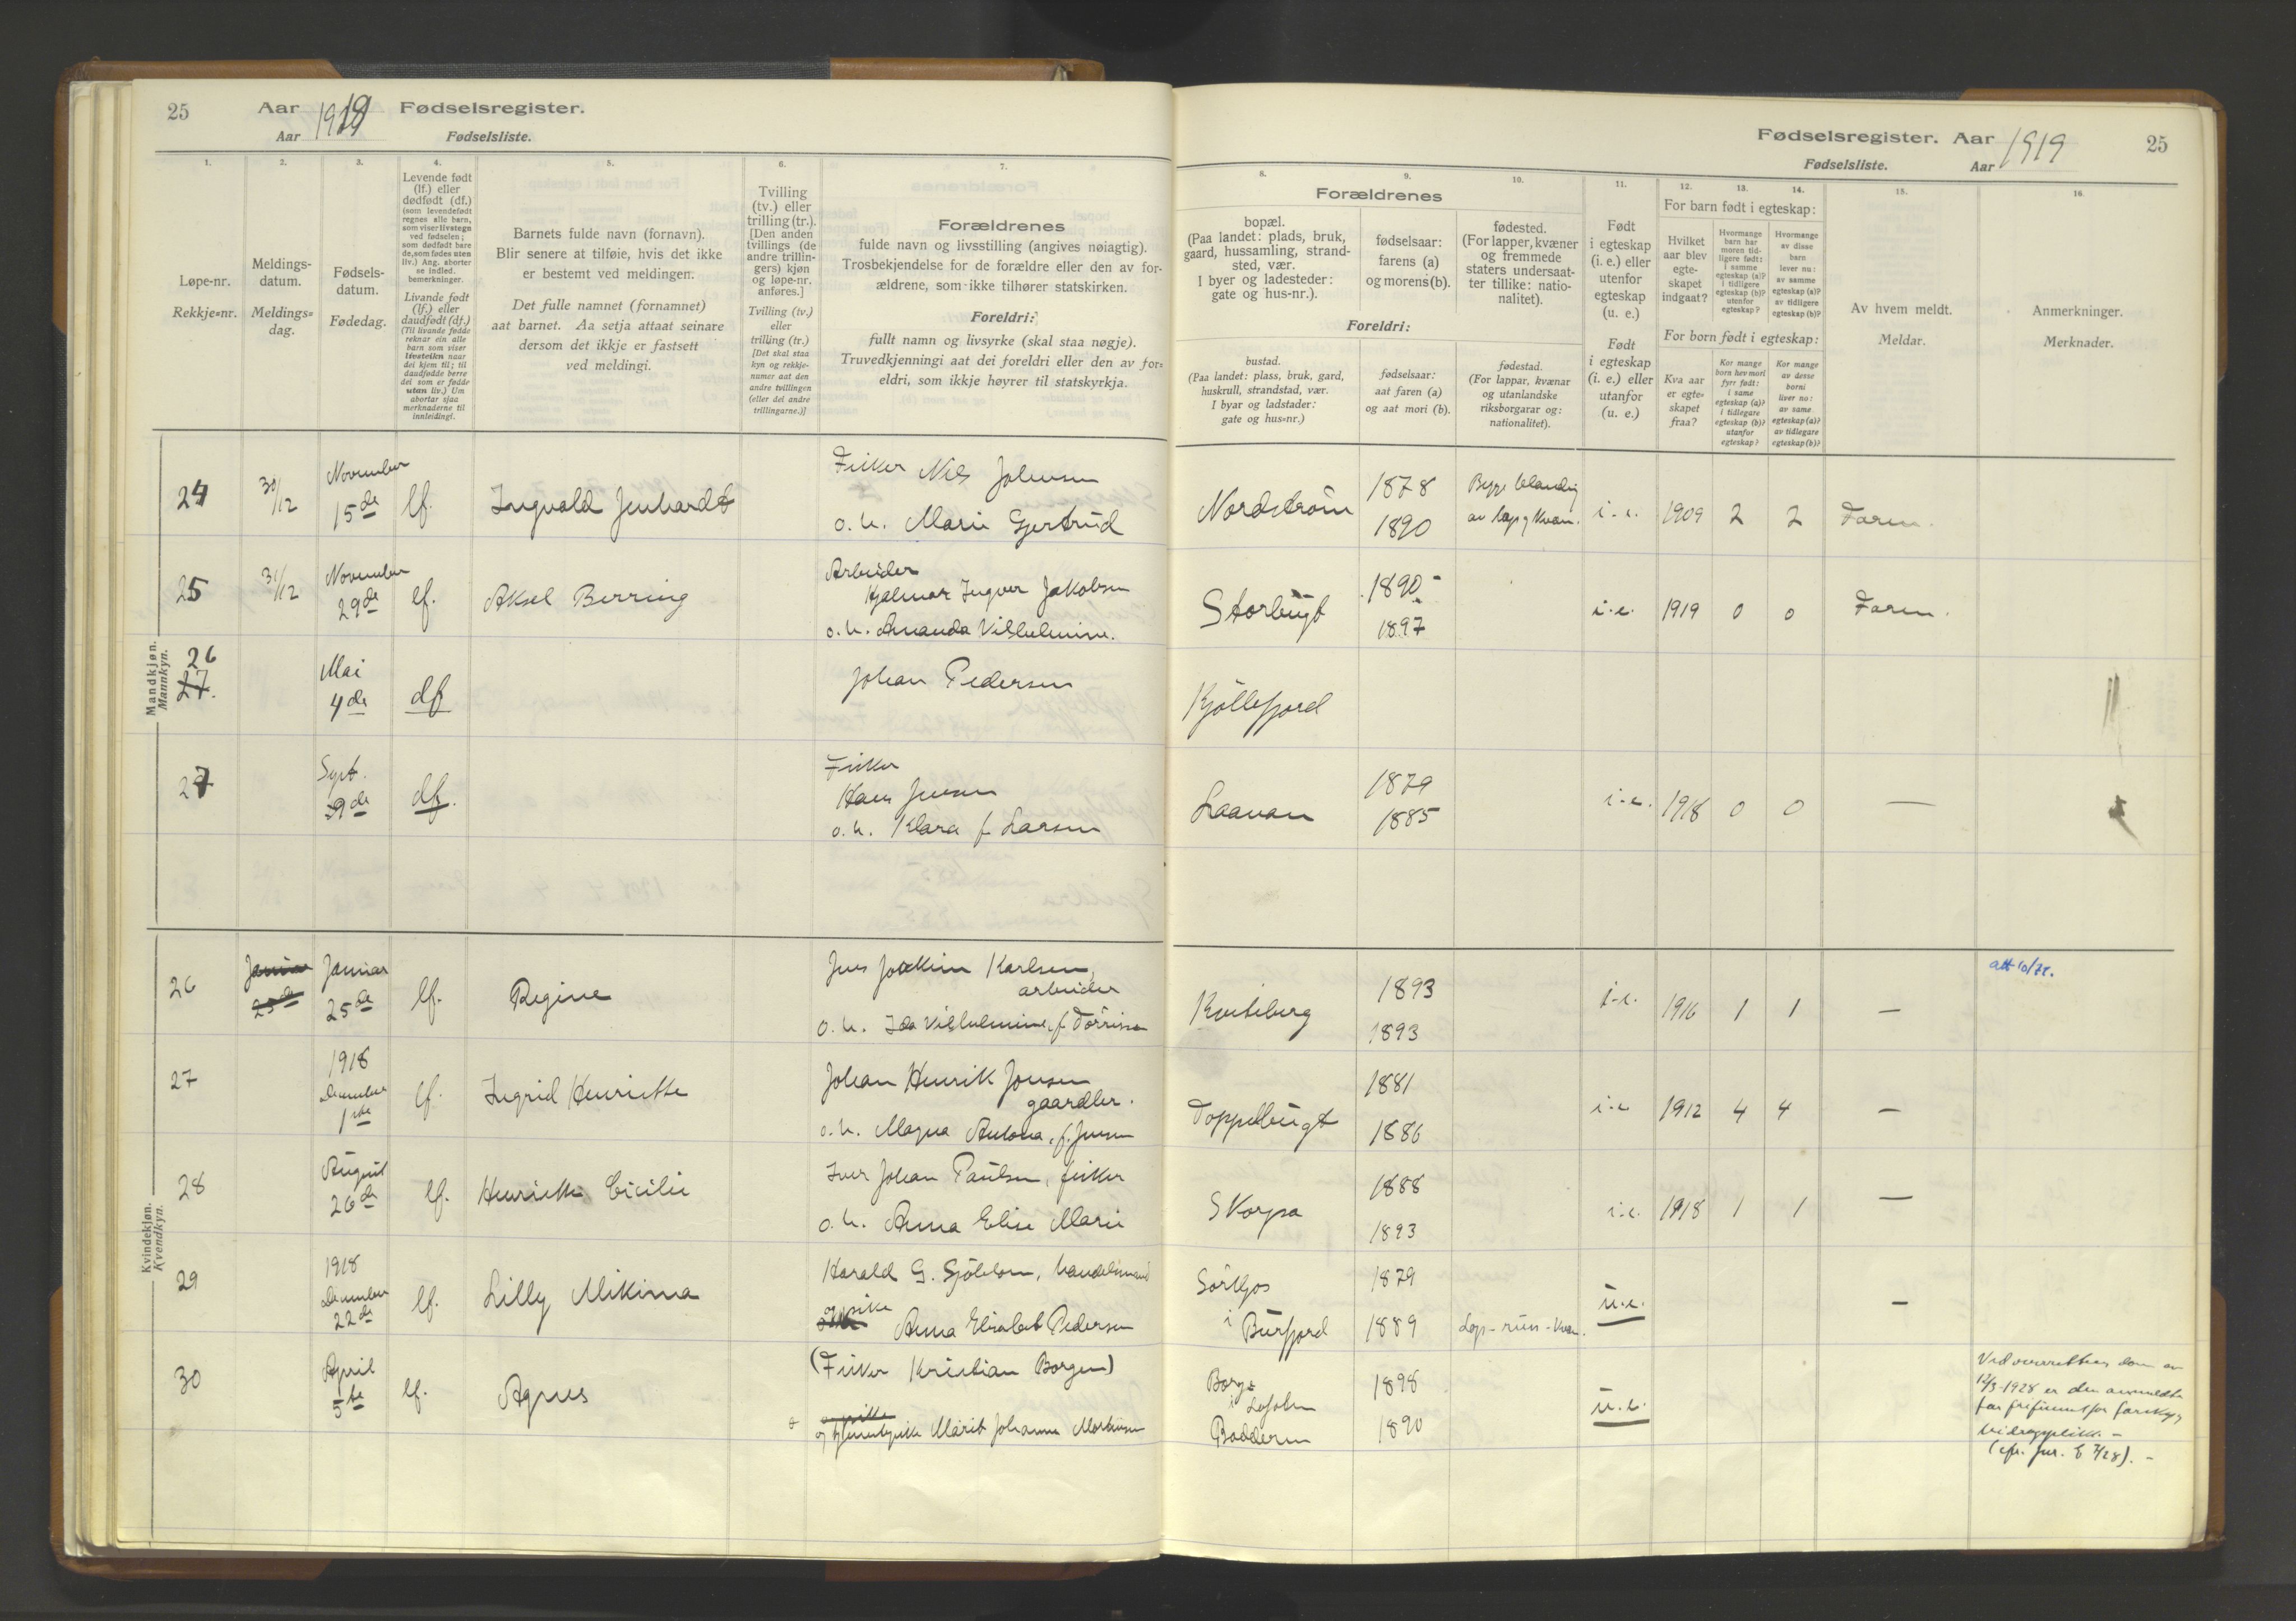 25 Aar 1919 Fødselsregister.
Aar Fødselsliste.
1. 2. 3. 4. 5. 6. 7.
Løpe-nr.
Rekkje=nr.
Meldings-
datum.
Meldings=
dag.
Fødsels-
datum.
Fødedag.
Levende født
(lf.) eller
dødfødt (df.)
(som levendefødt
regnes alle barn,
som viser livstegn
ved fødselen;
som dødfødt bare
de, som fødes uten
liv.) Ang. aborter
se indled.
bemerkninger.
Livande født
(lf.) eller
daudfødt (df.)
(Til livande fødde
reknar ein alle
barn som viser
livsteikn naar
dei kjem til; til
daudfødde berre
dei som er fødde
utan liv.) Um
abortar sjaa
merknaderne til
innleidingi.
Barnets fulde navn (fornavn).
Blir senere at tilføie, hvis det ikke
er bestemt ved meldingen.
Det fulle namnet (fornamnet)
aat barnet. Aa setja attaat seinare
dersom det ikkje er fastsett
ved meldingi.
Tvilling
(tv.) eller
trilling (tr.).
[Den anden
tvillings (de
andre trillin-
gers) kjøn
og løpe-nr.
anføres.]
Tvilling (tv.)
eller
trilling (tr.)
[Det skal staa
kyn og rekkje-
numer aat den
andre tvillingen
(eller dei andre
trillingarne.)]
Forældrenes
fulde navn og livsstilling (angives nøiagtig).
Trosbekjendelse for de forældre eller den av for-
ældrene, som ikke tilhører statskirken.
Foreldri:
fullt namn og livsyrke (skal staa nøgje).
Truvedkjenningi aat dei foreldri eller den av for=
eldri, som ikkje høyrer til statskyrkja.
Mandkjøn.
Mannkyn.
24 30/12 November
15de lf. Ingvald Jenhardt
Fisker Nils Johnsen
o. h. Marie Gjertrud
25 31/12 November
29de lf. Aksel Berring
Arbeider
Hjalmar Ingver Jakobsen
o. h. Amanda Vilhelmine.
26
27.
Mai
4de df
Johan Pedersen
27 Sept.
9de df.
Fisker
Hans Jensen
o. h. Klara f. Larsen
Kvindekjøn.
Kvendkyn.
26 Januar
25de
Januar
25de lf. Regine
Jens Joakim Karlsen,
arbeider
o. h. Ida Vilhelmine, f. Tørrissen
27 1918
December
1ste lf. Ingrid Henriette
Johan Henrik Jonsen
gaardbr.
o. h. Magna Antona, f. Jensen
28 August
26de lf. Henriette Cicilie
Iver Johan Paulsen, fisker
o. h. Anna Elise Marie
29 1918
December
22de lf. Lilly Mikina
Harald G. Sjöblom, handelsmand
og pike
Anna Elisabet Pedersen
30 April
5te lf. Agnes
(Fisker Kristian Borgen)
og tjenestepike Marit Johanna Mortensen
Fødselsregister. Aar 1919 25
Fødselsliste. Aar
8. 9. 10. 11. 12. 13. 14. 15. 16.
Forældrenes
bopæl.
(Paa landet: plads, bruk,
gaard, hussamling, strand-
sted, vær.
I byer og ladesteder:
gate og hus-nr.).
fødselsaar:
farens (a)
og morens (b).
fødested.
(For lapper, kvæner
og fremmede
staters undersaat-
ter tillike: natio-
nalitet).
Foreldri:
bustad.
(Paa landet: plass, bruk, gard,
huskrull, strandstad, vær.
I byar og ladstader:
gate og hus=nr.)
fødselsaar:
aat faren (a)
og aat mori (b).
fødestad.
(For lappar, kvænar
og utanlandske
riksborgarar og:
nationalitet).
Født
i egteskap
(i. e.) eller
utenfor
egteskap
(u. e.)
Født
i egteskap
(i. e.) eller
utanfor
(u. e.)
For barn født i egteskap:
Hvilket
aar blev
egte-
skapet
indgaat?
Hvormange
barn har
moren tid-
ligere født:
i samme
egteskap (a)?
i tidligere
egteskap (b)?
utenfor
egteskap?
Hvormange
av disse
barn
lever nu:
av samme
egteskap (a)?
av tidligere
egteskap (b)?
For born født i egteskap:
Kva aar
er egte=
skapet
fraa?
Kor mange
born hev mori
fyrr født:
i same
egteskap (a)?
i tidlegare
egteskap (b)?
utanfor
egteskap?
Kor mange
av desse
borni
liver no:
av same
egteskap (a)?
av tidlegare
egteskap (b)?
Av hvem meldt.
Meldar.
Anmerkninger.
Merknader.
Nordström 1878
1890 Begge blandig
av lap og kvæn. i. e. 1909 2 2 Faren.
Storbugt 1890
1897 i. e. 1919 0 0 Faren.
Kjöllefjord
Laavan 1879
1885 i. e. 1918 0 0 —
Kviteberg 1893
1893 i. e. 1916 1 1 — att 10/71.
Toppelbugt 1881
1886 i. e. 1912 4 4 —
Skorpa 1888
1893 i. e. 1918 1 1 —
i Burfjord 1879
1889 Lap-nun-kvæn. u. e. —
Borge
i Lofoten 1898
Badderen 1890 u. e.
Ved overrettens dom av
12/3-1928 er den anmeldte
far frifunnet for farskap og
bidragsplikt. -
(cfr. jur. § 7/28). -